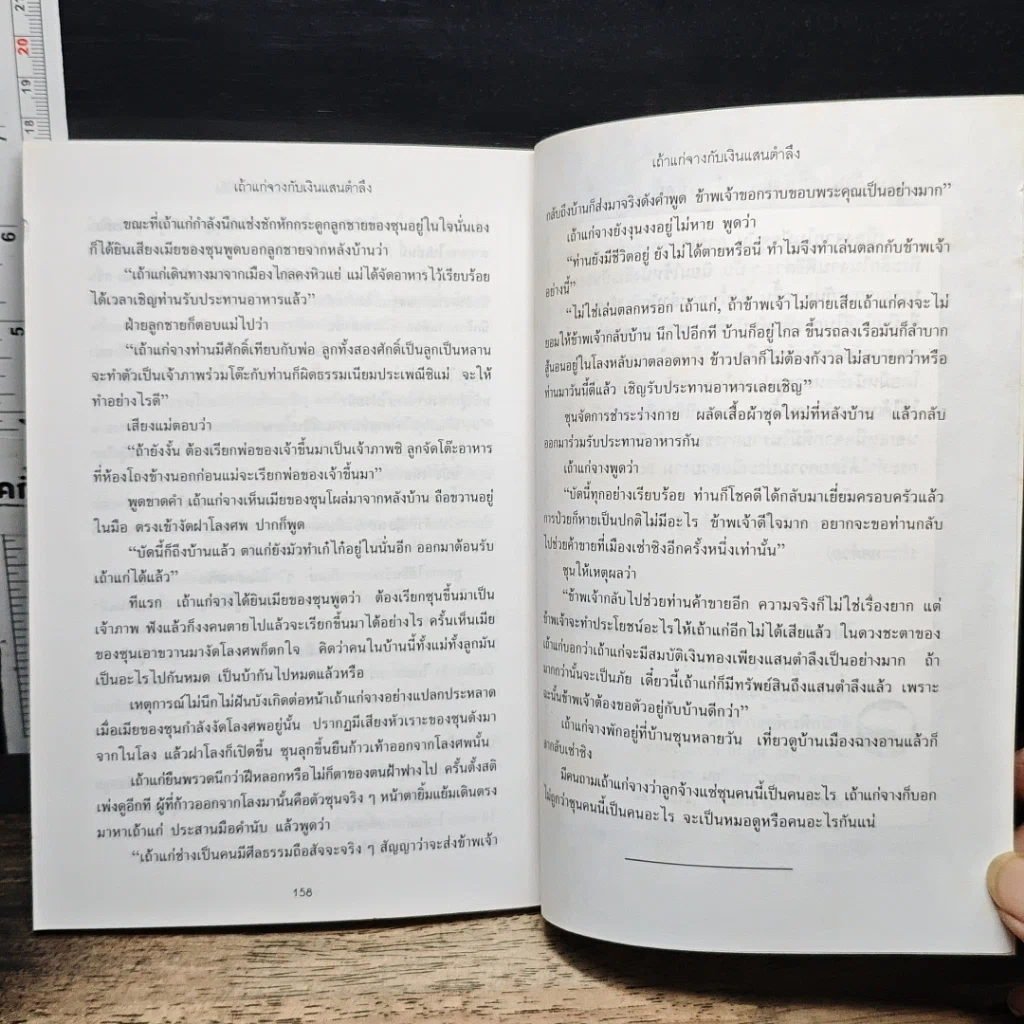 เถ้าแก่จางกับเงินแสนตำลึง
ขณะที่เถ้าแก่กำลังนึกแช่งชักหักกระดูกลูกชายของซุนอยู่ในใจนั่นเอง
ก็ได้ยินเสียงเมียของซุนพูดบอกลูกชายจากหลังบ้านว่า
“เถ้าแก่เดินทางมาจากเมืองไกลคงหิวแย่ แม่ได้จัดอาหารไว้เรียบร้อย
ได้เวลาเชิญท่านรับประทานอาหารแล้ว”
ฝ่ายลูกชายก็ตอบแม่ไปว่า
“เถ้าแก่จางท่านมีศักดิ์เทียบกับพ่อ ลูกทั้งสองศักดิ์เป็นลูกเป็นหลาน
จะทำตัวเป็นเจ้าภาพร่วมโต๊ะกับท่านก็ผิดธรรมเนียมประเพณีซิแม่ จะให้
ทำอย่างไรดี”
เสียงแม่ตอบว่า
“ถ้ายังงั้น ต้องเรียกพ่อของเจ้าขึ้นมาเป็นเจ้าภาพซิ ลูกจัดโต๊ะอาหาร
ที่ห้องโถงข้างนอกก่อนแม่จะเรียกพ่อของเจ้าขึ้นมา”
พูดขาดคำ เถ้าแก่จางเห็นเมียของซุนโผล่มาจากหลังบ้าน ถือขวานอยู่
ในมือ ตรงเข้างัดฝาโลงศพ ปากก็พูด
“บัดนี้ก็ถึงบ้านแล้ว ตาแก่ยังมัวทำเก้ไก๋อยู่ในนั่นอีก ออกมาต้อนรับ
เถ้าแก่ได้แล้ว”
ทีแรก เถ้าแก่จางได้ยินเมียของซุนพูดว่า ต้องเรียกซุนขึ้นมาเป็น
เจ้าภาพ ฟังแล้วก็งงคนตายไปแล้วจะเรียกขึ้นมาได้อย่างไร ครั้นเห็นเมีย
ของซุนเอาขวานมางัดโลงศพก็ตกใจ คิดว่าคนในบ้านนี้ทั้งแม่ทั้งลูกมัน
เป็นอะไรไปกันหมด เป็นบ้ากันไปหมดแล้วหรือ
เหตุการณ์ไม่นึกไม่ฝันบังเกิดต่อหน้าเถ้าแก่จางอย่างแปลกประหลาด
เมื่อเมียของซุนกำลังงัดโลงศพอยู่นั้น ปรากฏมีเสียงหัวเราะของซุนดังมา
จากในโลง แล้วฝาโลงก็เปิดขึ้น ซุนลุกขึ้นยืนก้าวเท้าออกจากโลงศพนั้น
เถ้าแก่ยืนพรวดนึกว่าผีหลอกหรือไม่ก็ตาของตนฝ้าฟางไป ครั้นตั้งสติ
เพ่งดูอีกที ผู้ที่ก้าวออกจากโลงมานั้นคือตัวซุนจริง ๆ หน้าตายิ้มแย้มเดินตรง
มาหาเถ้าแก่ ประสานมือคำนับ แล้วพูดว่า
“เถ้าแก่ช่างเป็นคนมีศีลธรรมถือสัจจะจริง ๆ สัญญาว่าจะส่งข้าพเจ้า
158
เถ้าแก่จางกับเงินแสนตำลึง
กลับถึงบ้านก็ส่งมาจริงดังคำพูด ข้าพเจ้าขอกราบขอบพระคุณเป็นอย่างมาก”
เถ้าแก่จางยังงุนงงอยู่ไม่หาย พูดว่า
“ท่านยังมีชีวิตอยู่ ยังไม่ได้ตายหรือนี่ ทำไมจึงทำเล่นตลกกับข้าพเจ้า
อย่างนี้”
“ไม่ใช่เล่นตลกหรอก เถ้าแก่, ถ้าข้าพเจ้าไม่ตายเสียเถ้าแก่คงจะไม่
ยอมให้ข้าพเจ้ากลับบ้าน นึกไปอีกที บ้านก็อยู่ไกล ขึ้นรถลงเรือมันก็ลำบาก
สู้นอนอยู่ในโลงหลับมาตลอดทาง ข้าวปลาก็ไม่ต้องกังวลไม่สบายกว่าหรือ
ท่านมาวันนี้ดีแล้ว เชิญรับประทานอาหารเลยเชิญ”
ซุนจัดการชำระร่างกาย ผลัดเสื้อผ้าชุดใหม่ที่หลังบ้าน แล้วกลับ
ออกมาร่วมรับประทานอาหารกัน
เถ้าแก่จางพูดว่า
“บัดนี้ทุกอย่างเรียบร้อย ท่านก็โชคดีได้กลับมาเยี่ยมครอบครัวแล้ว
การป่วยก็หายเป็นปกติไม่มีอะไร ข้าพเจ้าดีใจมาก อยากจะขอท่านกลับ
ไปช่วยค้าขายที่เมืองเซ่าชิงอีกครั้งหนึ่งเท่านั้น”
ซุนให้เหตุผลว่า
“ข้าพเจ้ากลับไปช่วยท่านค้าขายอีก ความจริงก็ไม่ใช่เรื่องยาก แต่
ข้าพเจ้าจะทำประโยชน์อะไรให้เถ้าแก่อีกไม่ได้เสียแล้ว ในดวงชะตาของ
เถ้าแก่บอกว่าเถ้าแก่จะมีสมบัติเงินทองเพียงแสนตำลึงเป็นอย่างมาก ถ้า
มากกว่านั้นจะเป็นภัย เดี๋ยวนี้เถ้าแก่ก็มีทรัพย์สินถึงแสนตำลึงแล้ว เพราะ
ฉะนั้นข้าพเจ้าต้องขอตัวอยู่กับบ้านดีกว่า”
เถ้าแก่จางพักอยู่ที่บ้านซุนหลายวัน เที่ยวดูบ้านเมืองฉางอานแล้วก็
ลากลับเซ่าชิง
มีคนถามเถ้าแก่จางว่าลูกจ้างแซ่ซุนคนนี้เป็นคนอะไร เถ้าแก่จางก็บอก
ไม่ถูกว่าซุนคนนี้เป็นคนอะไร จะเป็นหมอดูหรือคนอะไรกันแน่
21
20
19
18
6
5